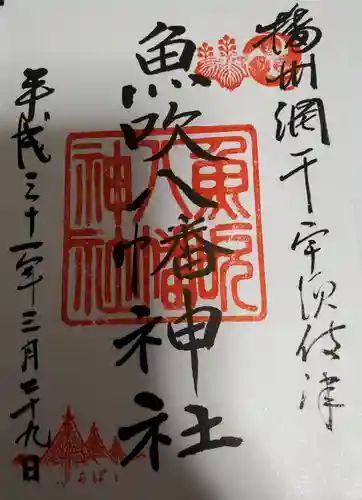 播州網干宇須伎津
魚吹八幡神社
魚吹
八幡
神社
平成三十一年三月二十九日